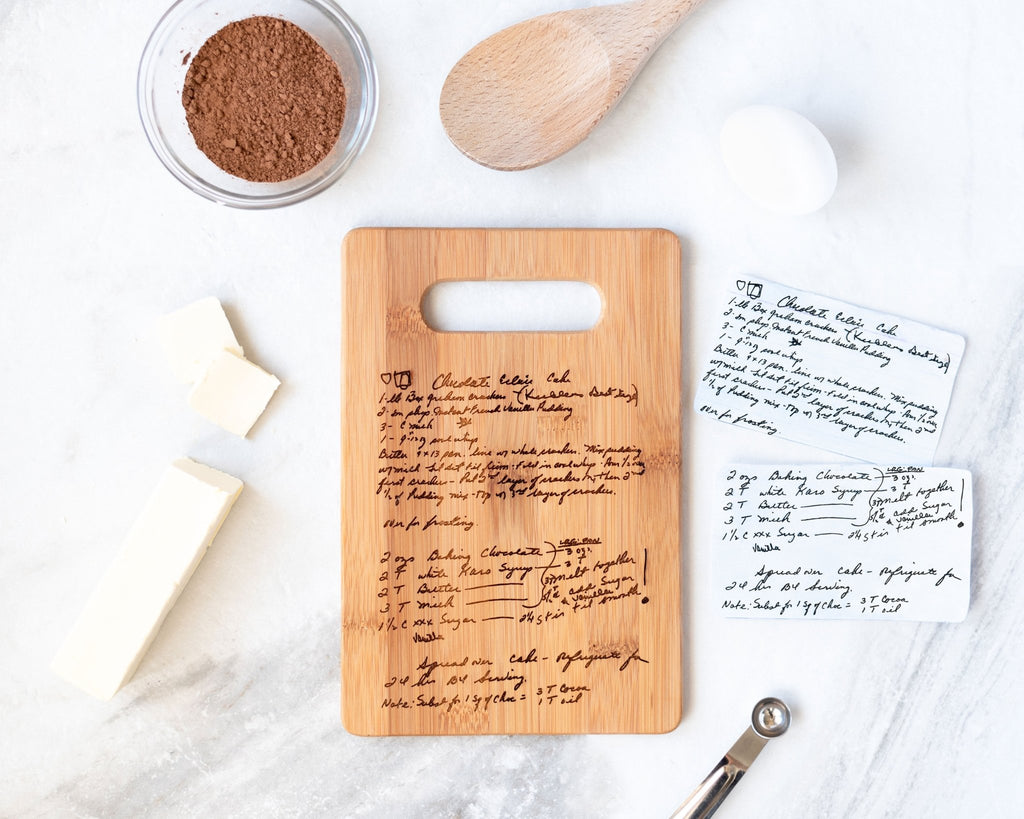 Chocolate Eclair Cake
1-lb Box graham crackers (Keeblers Best
2- sm pkgs Instant French Vanilla Pudding
3- C milk
1- 9 oz
Butter 9 x 13 pan. line w/ whole crackers. Mix pudding
w/ milk
first crackers - Put 2nd layer of crackers then 2nd
1/2 of Pudding mix - Top w/ 3rd layer of crackers.
over for frosting.
LRG. PAN
2 ozs Baking Chocolate 3 ozs.
2 T white Karo Syrup 3 T
2 T Butter melt together
3 T milk add Sugar
& vanilla
1 1/2 C xxx Sugar til smooth
Vanilla
Spread over Cake - Refrigerate for
24 hrs B4 Serving.
Note: Subst for 1 Sq of Choc = 3 T Cocoa
1 T oil
Chocolate Eclair Cake
1-lb Box graham crackers (Keeblers Best
2- sm pkgs Instant French Vanilla Pudding
3- C milk
1- 9 oz
Butter 9 x 13 pan. line w/ whole crackers. Mix pudding
w/ milk
first crackers - Put 2nd layer of crackers then 2nd
1/2 of Pudding mix - Top w/ 3rd layer of crackers.
over for frosting
LRG. PAN
2 ozs Baking Chocolate 3 ozs
2 T white Karo Syrup 3 T
2 T Butter melt together
3 T milk add Sugar
& vanilla
1 1/2 C xxx Sugar til smooth
Vanilla
Spread over Cake - Refrigerate for
24 hrs B4 Serving.
Note: Subst for 1 Sq of Choc = 3 T Cocoa
1 T oil